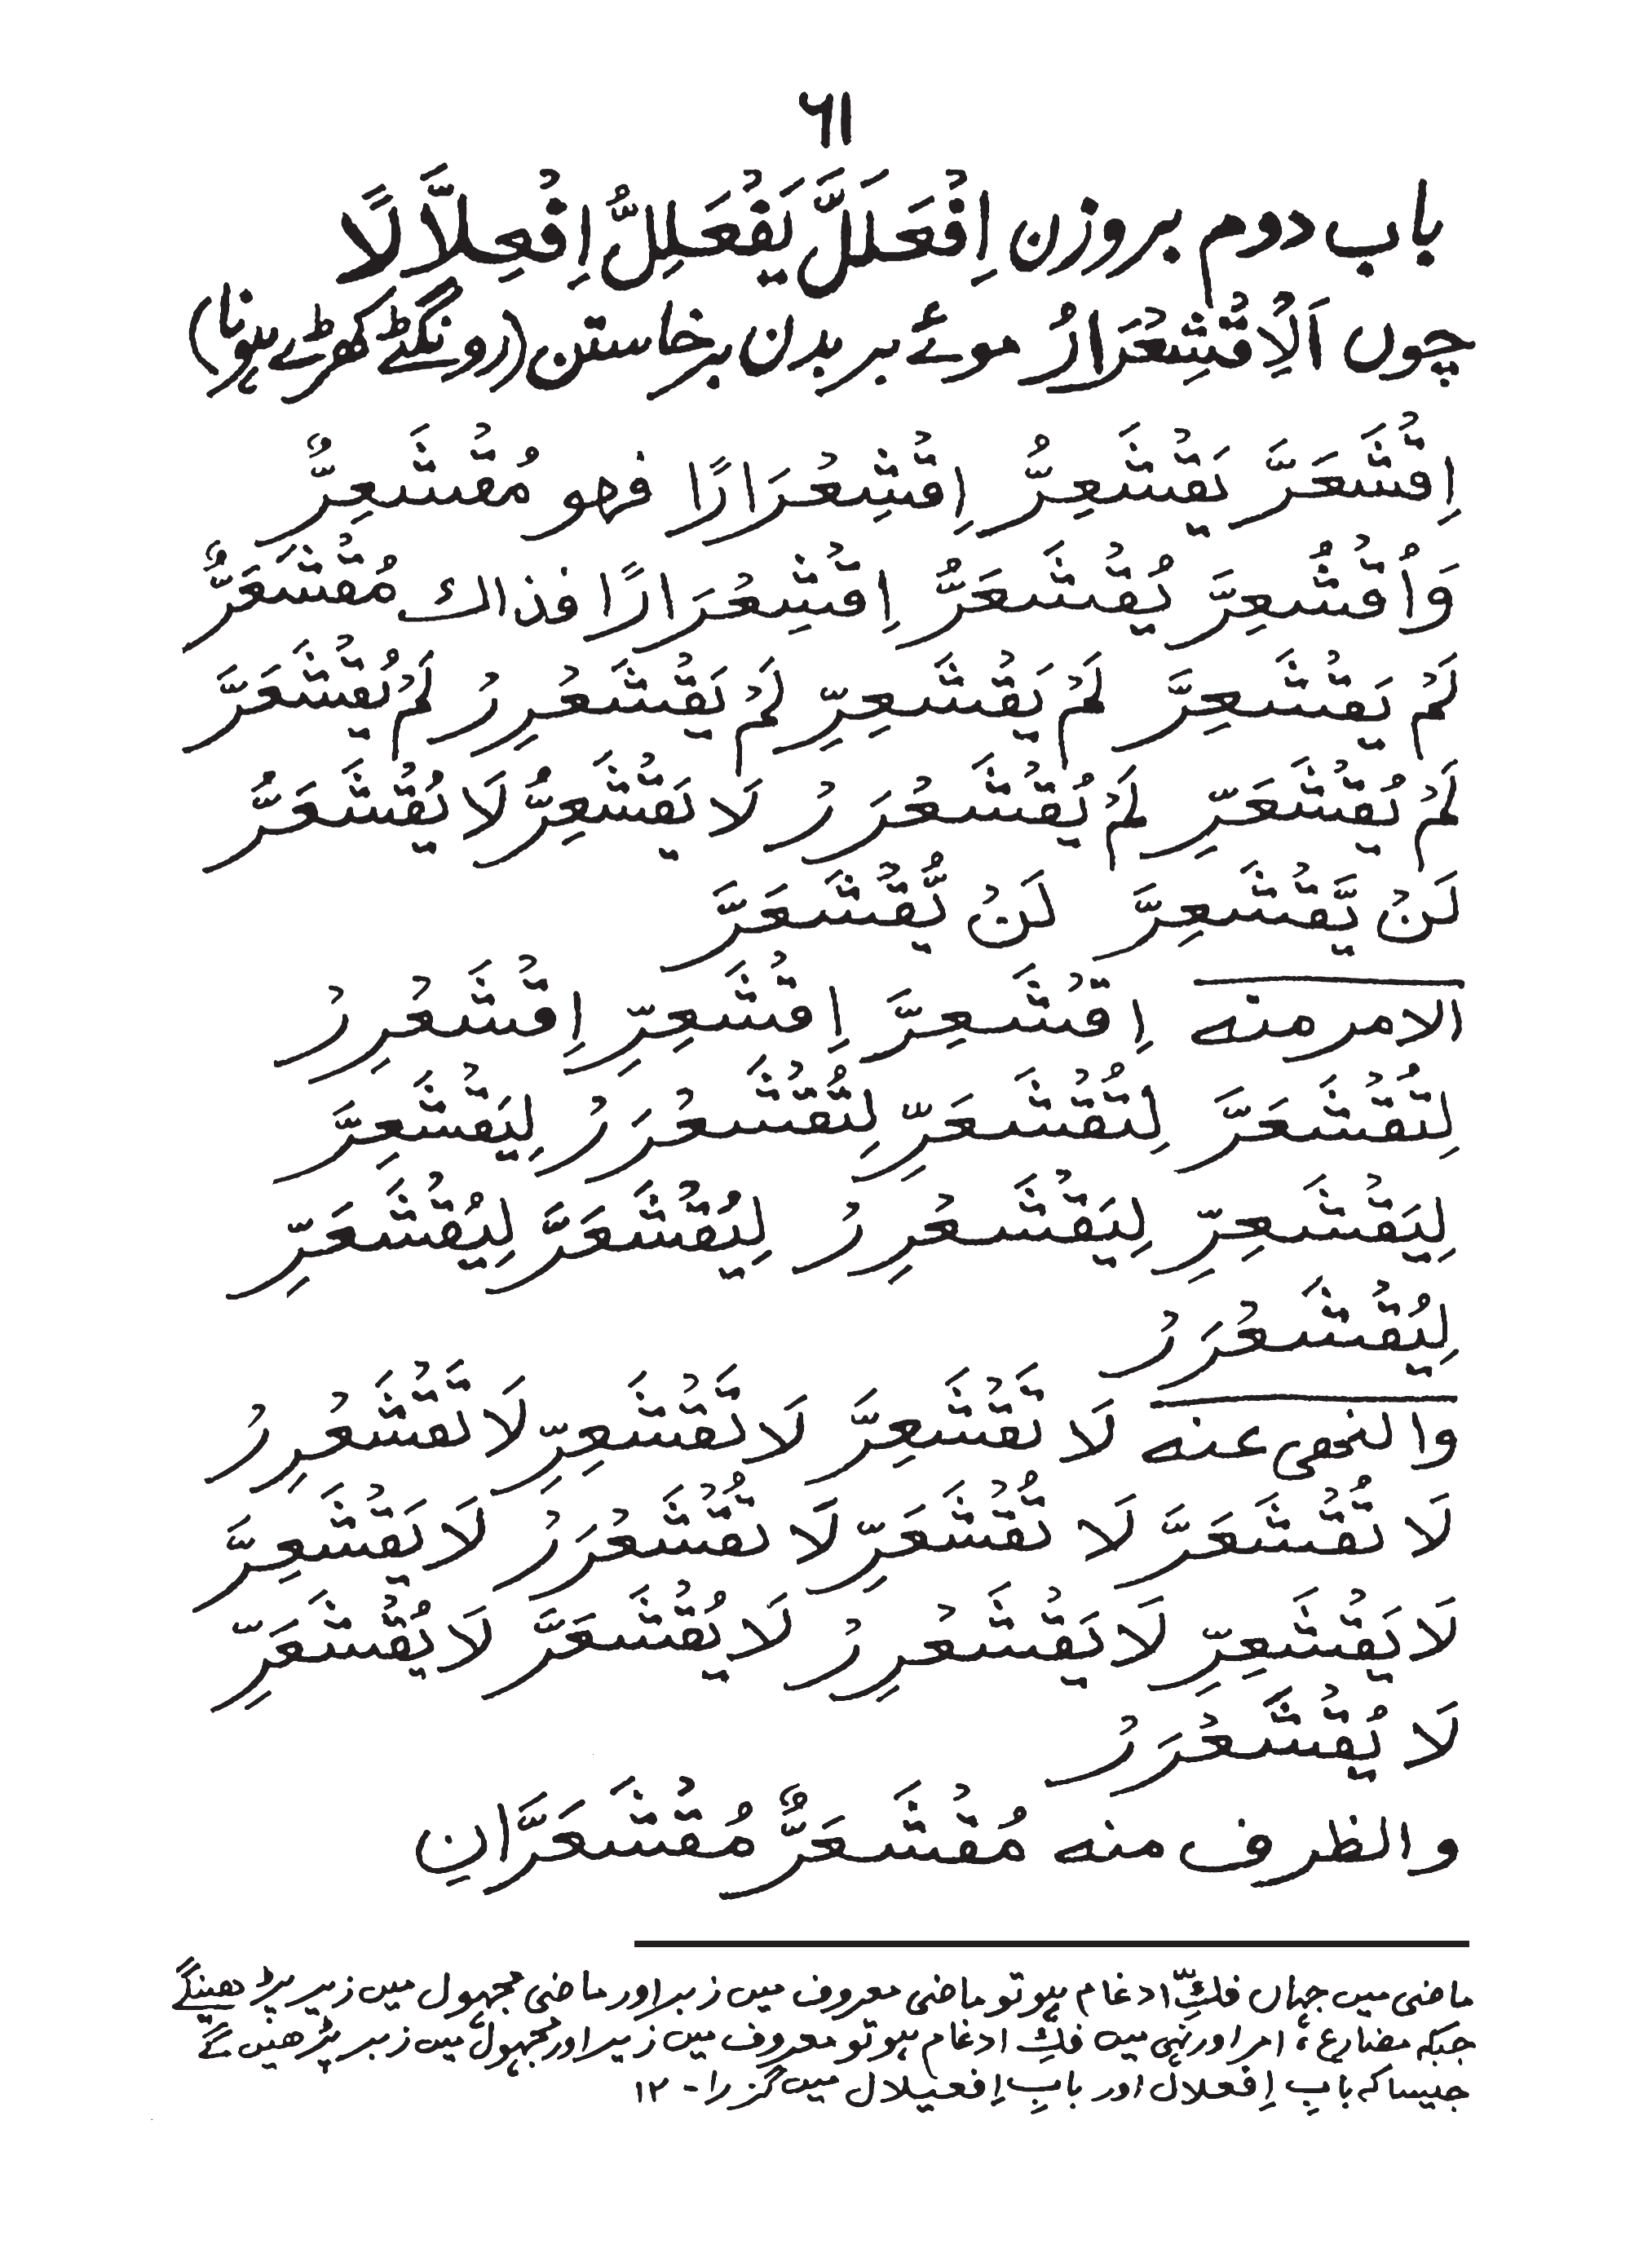 ٦١
باب دوم بروزن اِفْعَلَلَّ يَفْعَلِلُّ اِفْعِلَّالًا
چوں اَلْاِقْشِعْرَارُ موئے بر بدن برخاستن (رونگٹے کھڑے ہونا)
اِقْشَعَرَّ يَقْشَعِرُّ اِقْشِعْرَارًا فهو مُقْشَعِرٌّ
وَاُقْشُعِرَّ يُقْشَعَرُّ اِقْشِعْرَارًا فذاك مُقْشَعَرٌّ
لَمْ يَقْشَعِرَّ لَمْ يَقْشَعِرِّ لَمْ يَقْشَعْرِرْ لَمْ يُقْشَعَرَّ
لَمْ يُقْشَعَرِّ لَمْ يُقْشَعْرَرْ لَا يَقْشَعِرُّ لَا يُقْشَعَرُّ
لَنْ يَّقْشَعِرَّ لَنْ يُّقْشَعَرَّ
الامر منه اِقْشَعِرَّ اِقْشَعِرِّ اِقْشَعْرِرْ
لِتُقْشَعَرَّ لِتُقْشَعَرِّ لِتُقْشَعْرَرْ لِيَقْشَعِرَّ
لِيَقْشَعِرِّ لِيَقْشَعْرِرْ لِيُقْشَعَرَّ لِيُقْشَعَرِّ
لِيُقْشَعْرَرْ
والنهى عنه لَا تَقْشَعِرَّ لَا تَقْشَعِرِّ لَا تَقْشَعْرِرْ
لَا تُقْشَعَرَّ لَا تُقْشَعَرِّ لَا تُقْشَعْرَرْ لَا يَقْشَعِرَّ
لَا يَقْشَعِرِّ لَا يَقْشَعْرِرْ لَا يُقْشَعَرَّ لَا يُقْشَعَرِّ
لَا يُقْشَعْرَرْ
والظرف منه مُقْشَعَرٌّ مُقْشَعَرَّانِ
ماضی میں جہاں فکِّ ادغام ہو تو ماضی معروف میں زبر اور ماضی مجہول میں زیر پڑھینگے
جبکہ مضارع، امر اور نہی میں فکِّ ادغام ہو تو معروف میں زیر اور مجہول میں زبر پڑھیں گے
جیسا کہ بابِ اِفعلال اور بابِ اِفعیلال میں گزرا۔ ۱۲